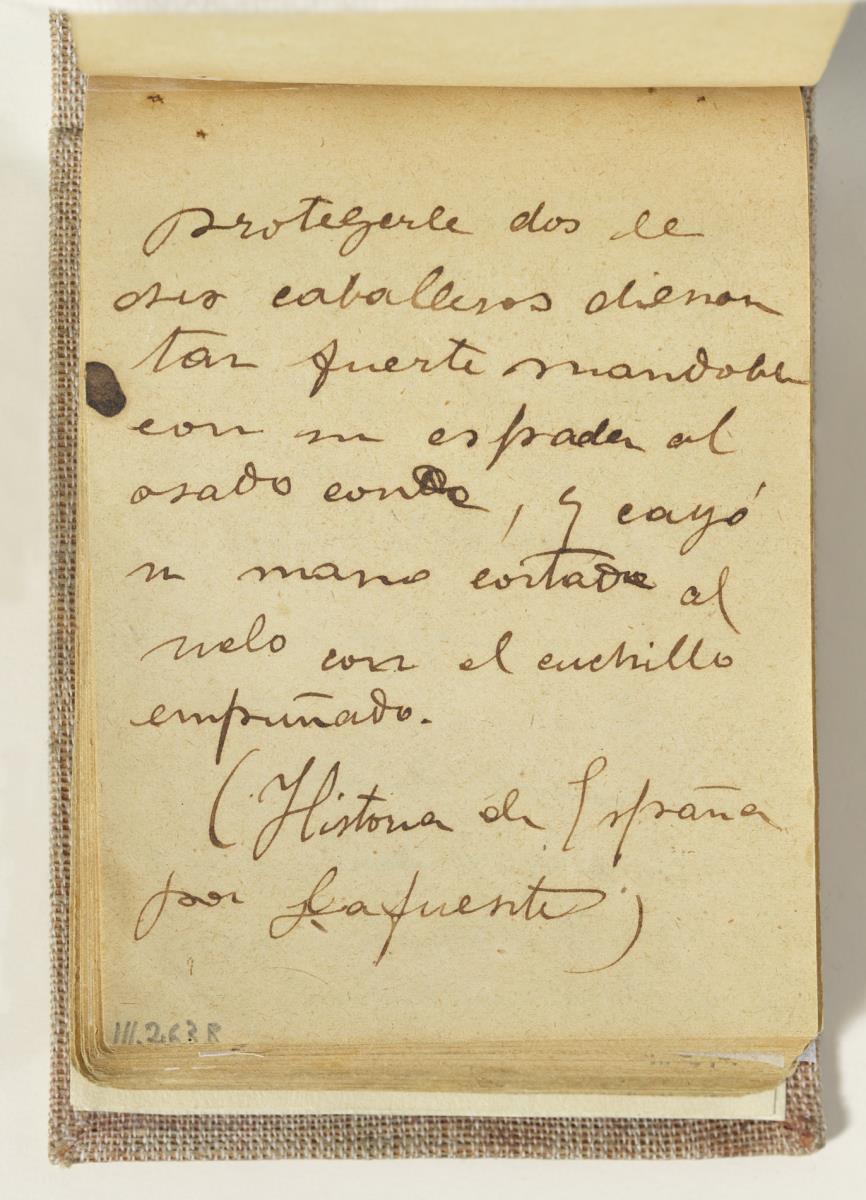 protegerle dos de
sus caballeros dieron
tan fuerte mandoble
con su espada al
osado conde, y cayó
su mano cortada al
suelo con el cuchillo
empuñado.
(Historia de España
por Lafuente)
III.263R